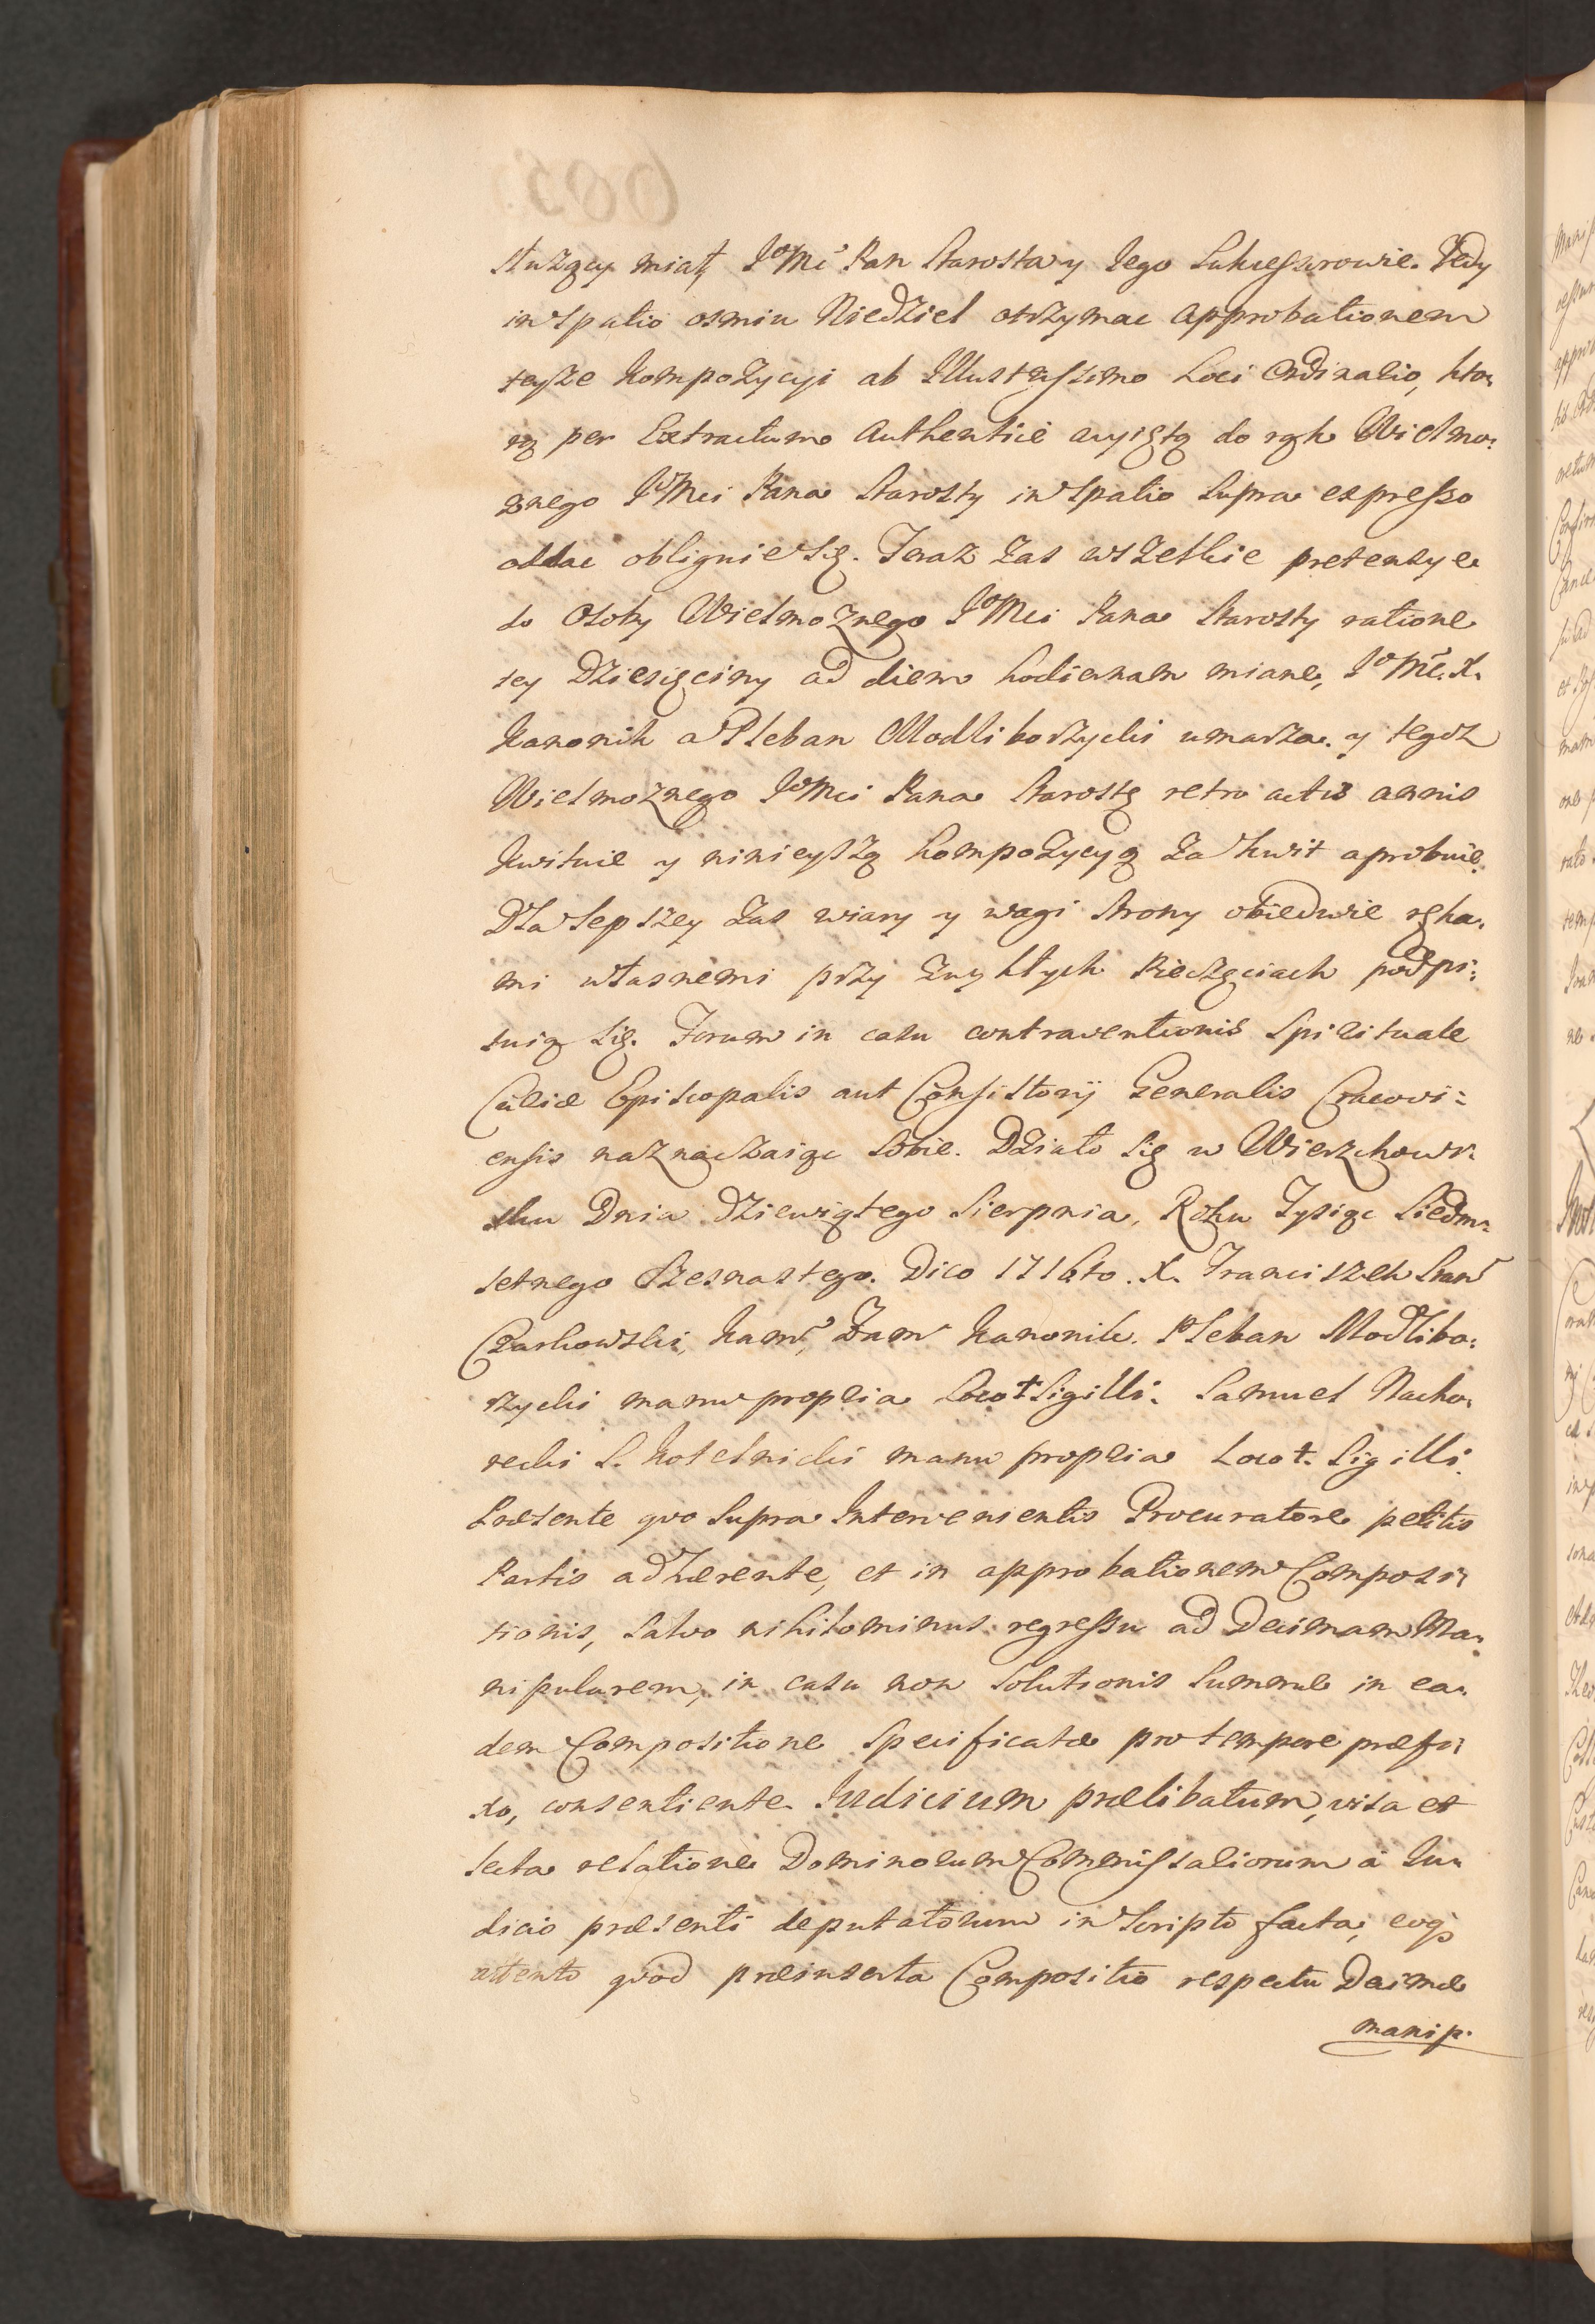 służący miał, JoMć Pan Starosta y Jego Sukcessorowie. Tedy
in Spatio osmiu Niedziel otrzymac approbationem
teysze kompozycyi ab Illustrissimo Loci Ordinario, kto„
rą per Extractum Authentice wyiętą do rąk Wielmo„
znego JoMci Pana Starosty in Spatio Supra expresso
oddac obliguie się. Teraz zas wszelkie pretensye
do Osoby Wielmoznego JoMci Pana Starosty ratione
tey Dziesięciny ad diem hodiernam miane, JoMć. X.
Kanonik a Pleban Modliborzycki umarza. y tegoz
Wielmoznego JoMci Pana Starostę retro actis annis
kwituie y ninieyszą kompozycyą za kwit aprobuie.
Dla lepszey zas wiary y wagi Strony obiedwie ręka„
mi własnemi przy zwykłych Pieczęciach podpi„
suią się. Forum in casu contraventionis Spirituale
Curiæ Episcopalis aut Consistorij Generalis Cracovi„
ensis naznaczaiąc sobie. Działo się w Wierzchowi„
sku Dnia dziewiątego Sierpnia, Roku Tysiąc Siedm„
setnego Szesnastego. Dico 1716to. X. Franciszek Stan
Czarkowski, Kam, Zam Kanonik. Pleban Modlibo„
rzycki manu propria Loco + Sigilli. Samuel Nacho„
recki S. Kotelnicki manu propria Loco +. Sigilli.
Præsente quo Supra Intervenientis Procuratore petitis
Partis adhærente, et in approbationem Composi„
tionis, salvo nihilominus regressu ad Decimam Ma„
nipularem, in casu non solutionis Summæ in ea„
dem Compositione specificatæ pro tempore præfi„
xo, consentiente. Judicium prælibatum, visa et
lecta relatione Dominorum Commissariorum à Ju„
dicio præsenti deputatorum in Scripto facta, eoq3
attento quod præinserta Compositio respectu Decimæ
manip.